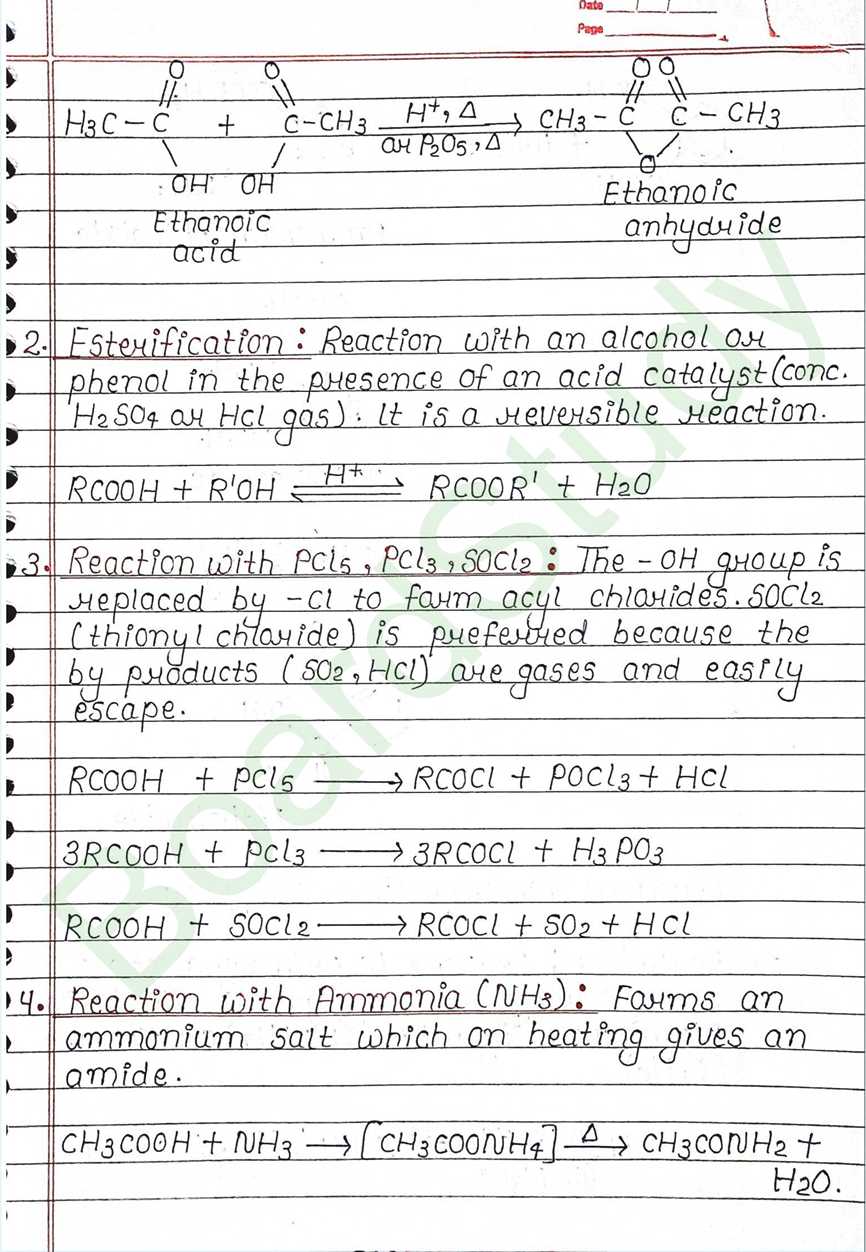 Date
Page
O O O O
H3C – C + C – CH3 H+, Δ CH3 – C C – CH3
or P2O5, Δ
OH OH O
Ethanoic acid
Ethanoic anhydride
2. Esterification : Reaction with an alcohol or
phenol in the presence of an acid catalyst (conc.
H2SO4 or HCl gas). It is a reversible reaction.
RCOOH + R'OH ⇌ H+ RCOOR' + H2O
3. Reaction with PCl5, PCl3, SOCl2 : The – OH group is
replaced by –Cl to form acyl chlorides. SOCl2
(thionyl chloride) is preferred because the
by products (SO2, HCl) are gases and easily
escape.
RCOOH + PCl5 → RCOCl + POCl3 + HCl
3RCOOH + PCl3 → 3RCOCl + H3PO3
RCOOH + SOCl2 → RCOCl + SO2 + HCl
4. Reaction with Ammonia (NH3) : Forms an
ammonium salt which on heating gives an
amide.
CH3COOH + NH3 → [CH3COONH4] Δ → CH3CONH2 +
H2O.
BoardStudy